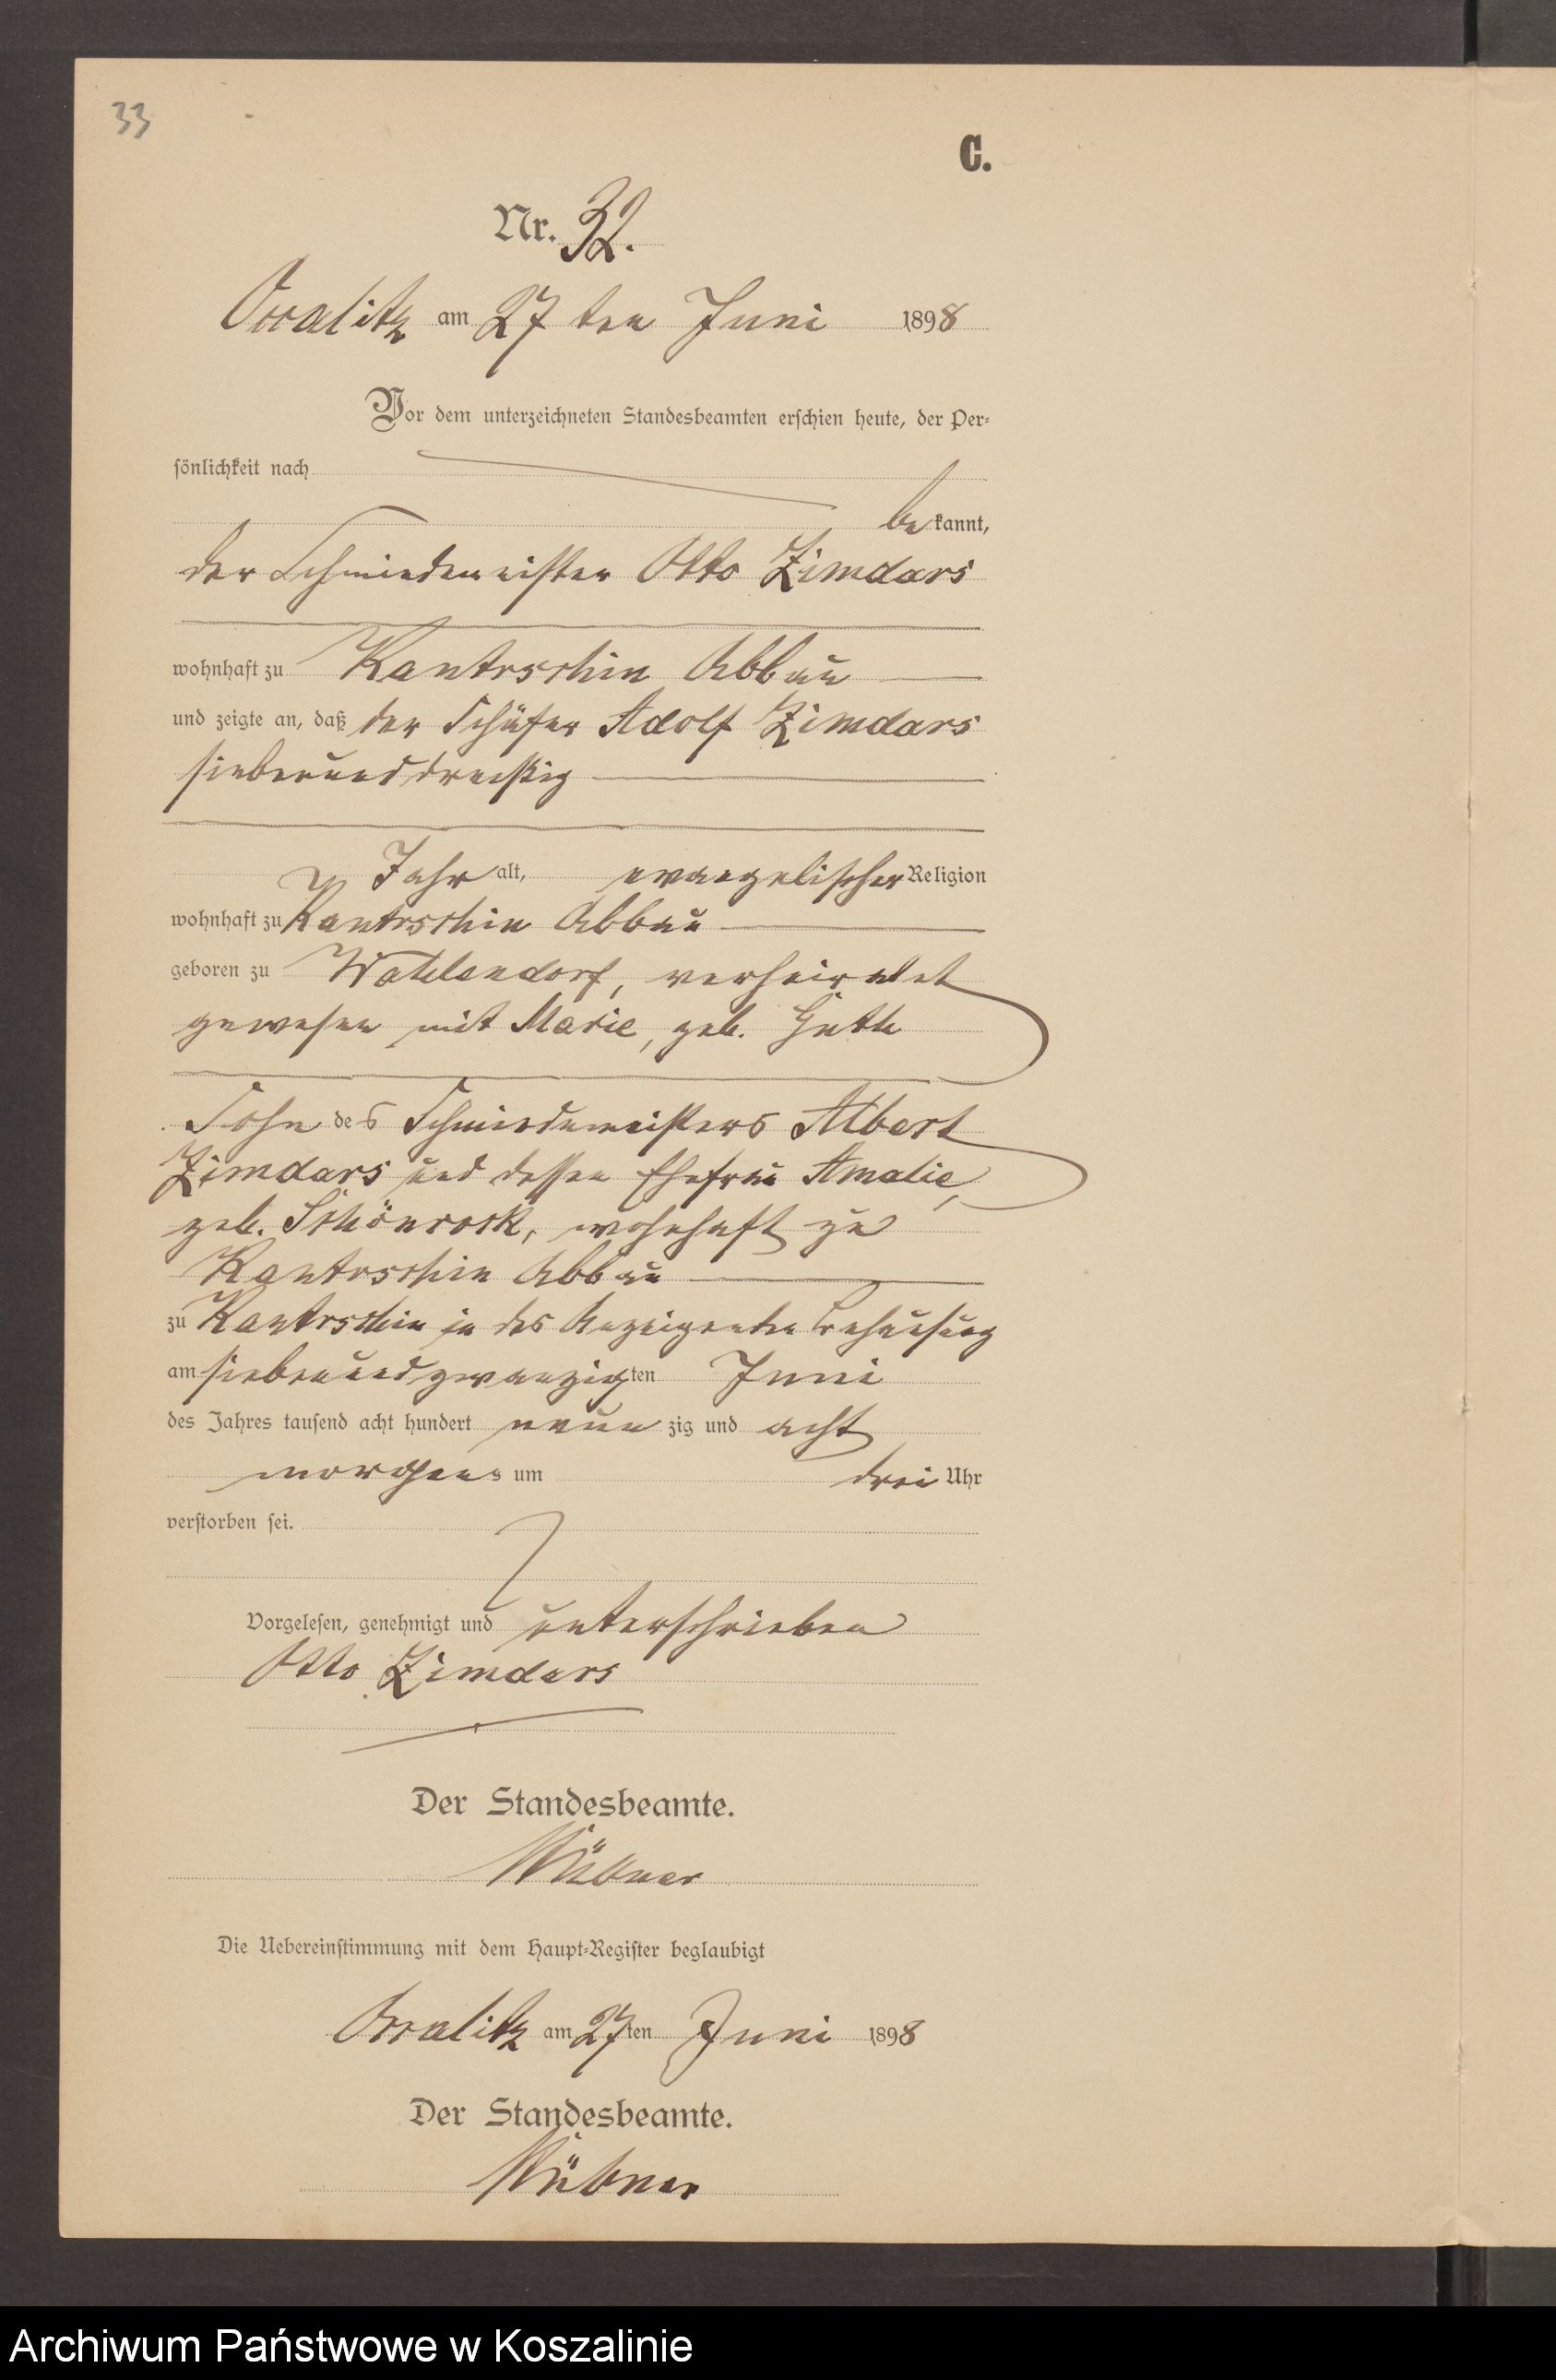 33
C.
Nr. 32.
am 27 ten Juni 1898
Vor dem unterzeichneten Standesbeamten erschien heute, der Per-
sönlichkeit nach
bekannt,
der Schmiedemeister Otto Zimdars
wohnhaft zu Kantrschin Abbau
und zeigte an, daß der Schäfer Adolf Zimdars
siebenunddreißig
Jahr alt, evangelischer Religion
wohnhaft zu Kantrschin Abbau
geboren zu Wahlendorf, verheiratet
gewesen mit Marie, geb.
Sohn des Schmiedemeisters Albert
Zimdars und dessen Ehefrau Amalie,
geb. Schönrock, wohnhaft zu
Kantrschin Abbau
zu Kantrschin in des Anzeigenden Behausung
am siebenundzwanzigten Juni
des Jahres tausend acht hundert neunzig und acht
morgens um drei Uhr
verstorben sei.
Vorgelesen, genehmigt und unterschrieben
Otto Zimdars
Der Standesbeamte.
Die Uebereinstimmung mit dem Haupt-Register beglaubigt
am 27ten Juni 1898
Der Standesbeamte.
Archiwum Państwowe w Koszalinie